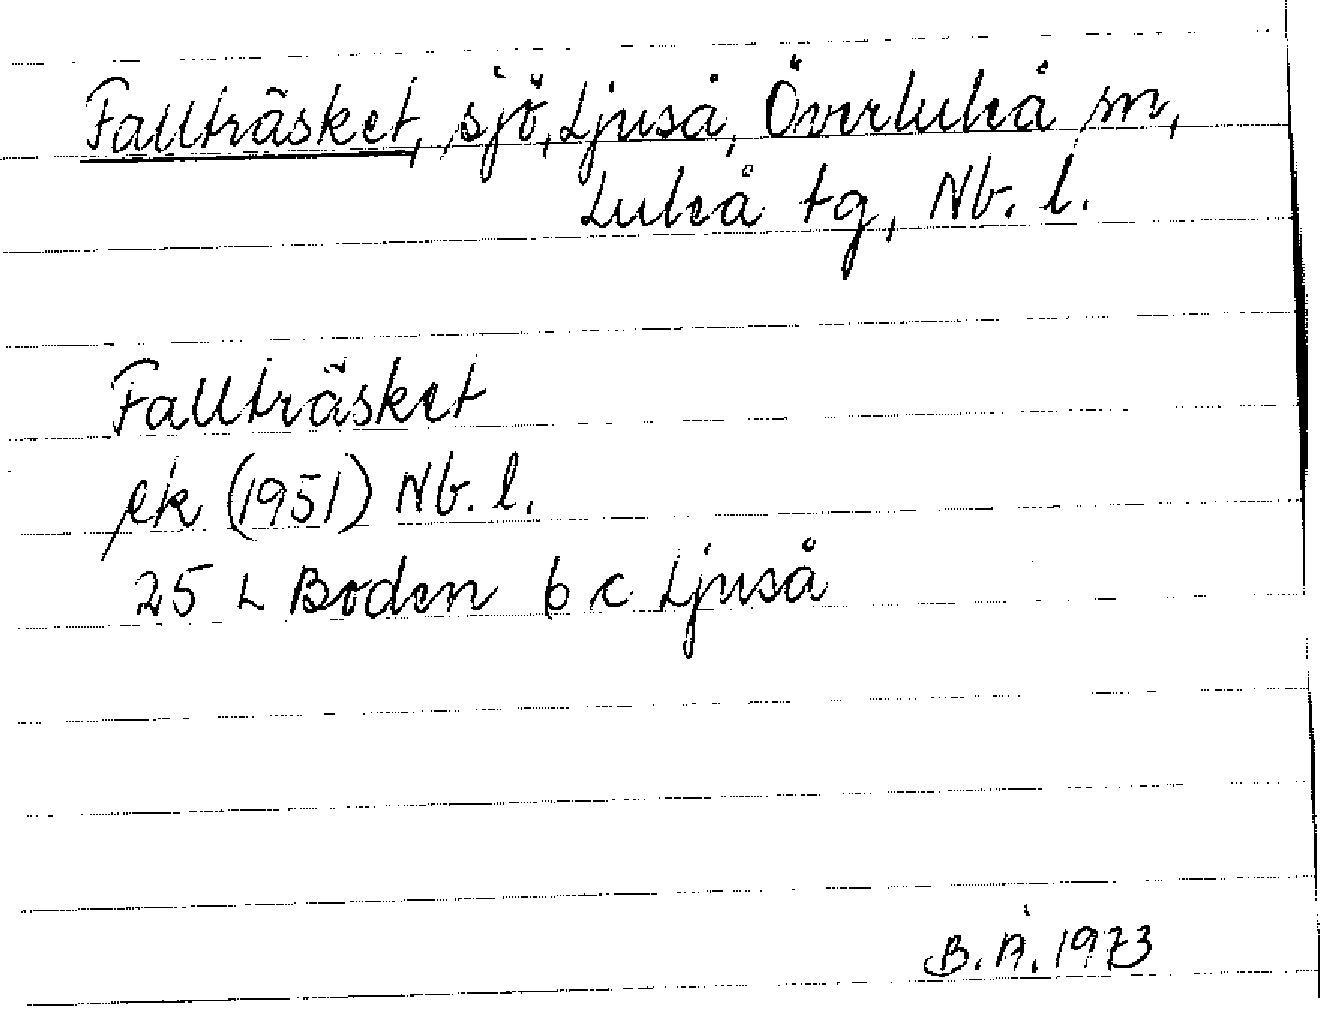 Fallträsket, sjö, Ljuså, Överluleå sn,
Luleå tg, Nb. l.
Fallträsket
ek (1951) Nb. l.
25 L Boden 6 c Ljuså
B.Å. 1973